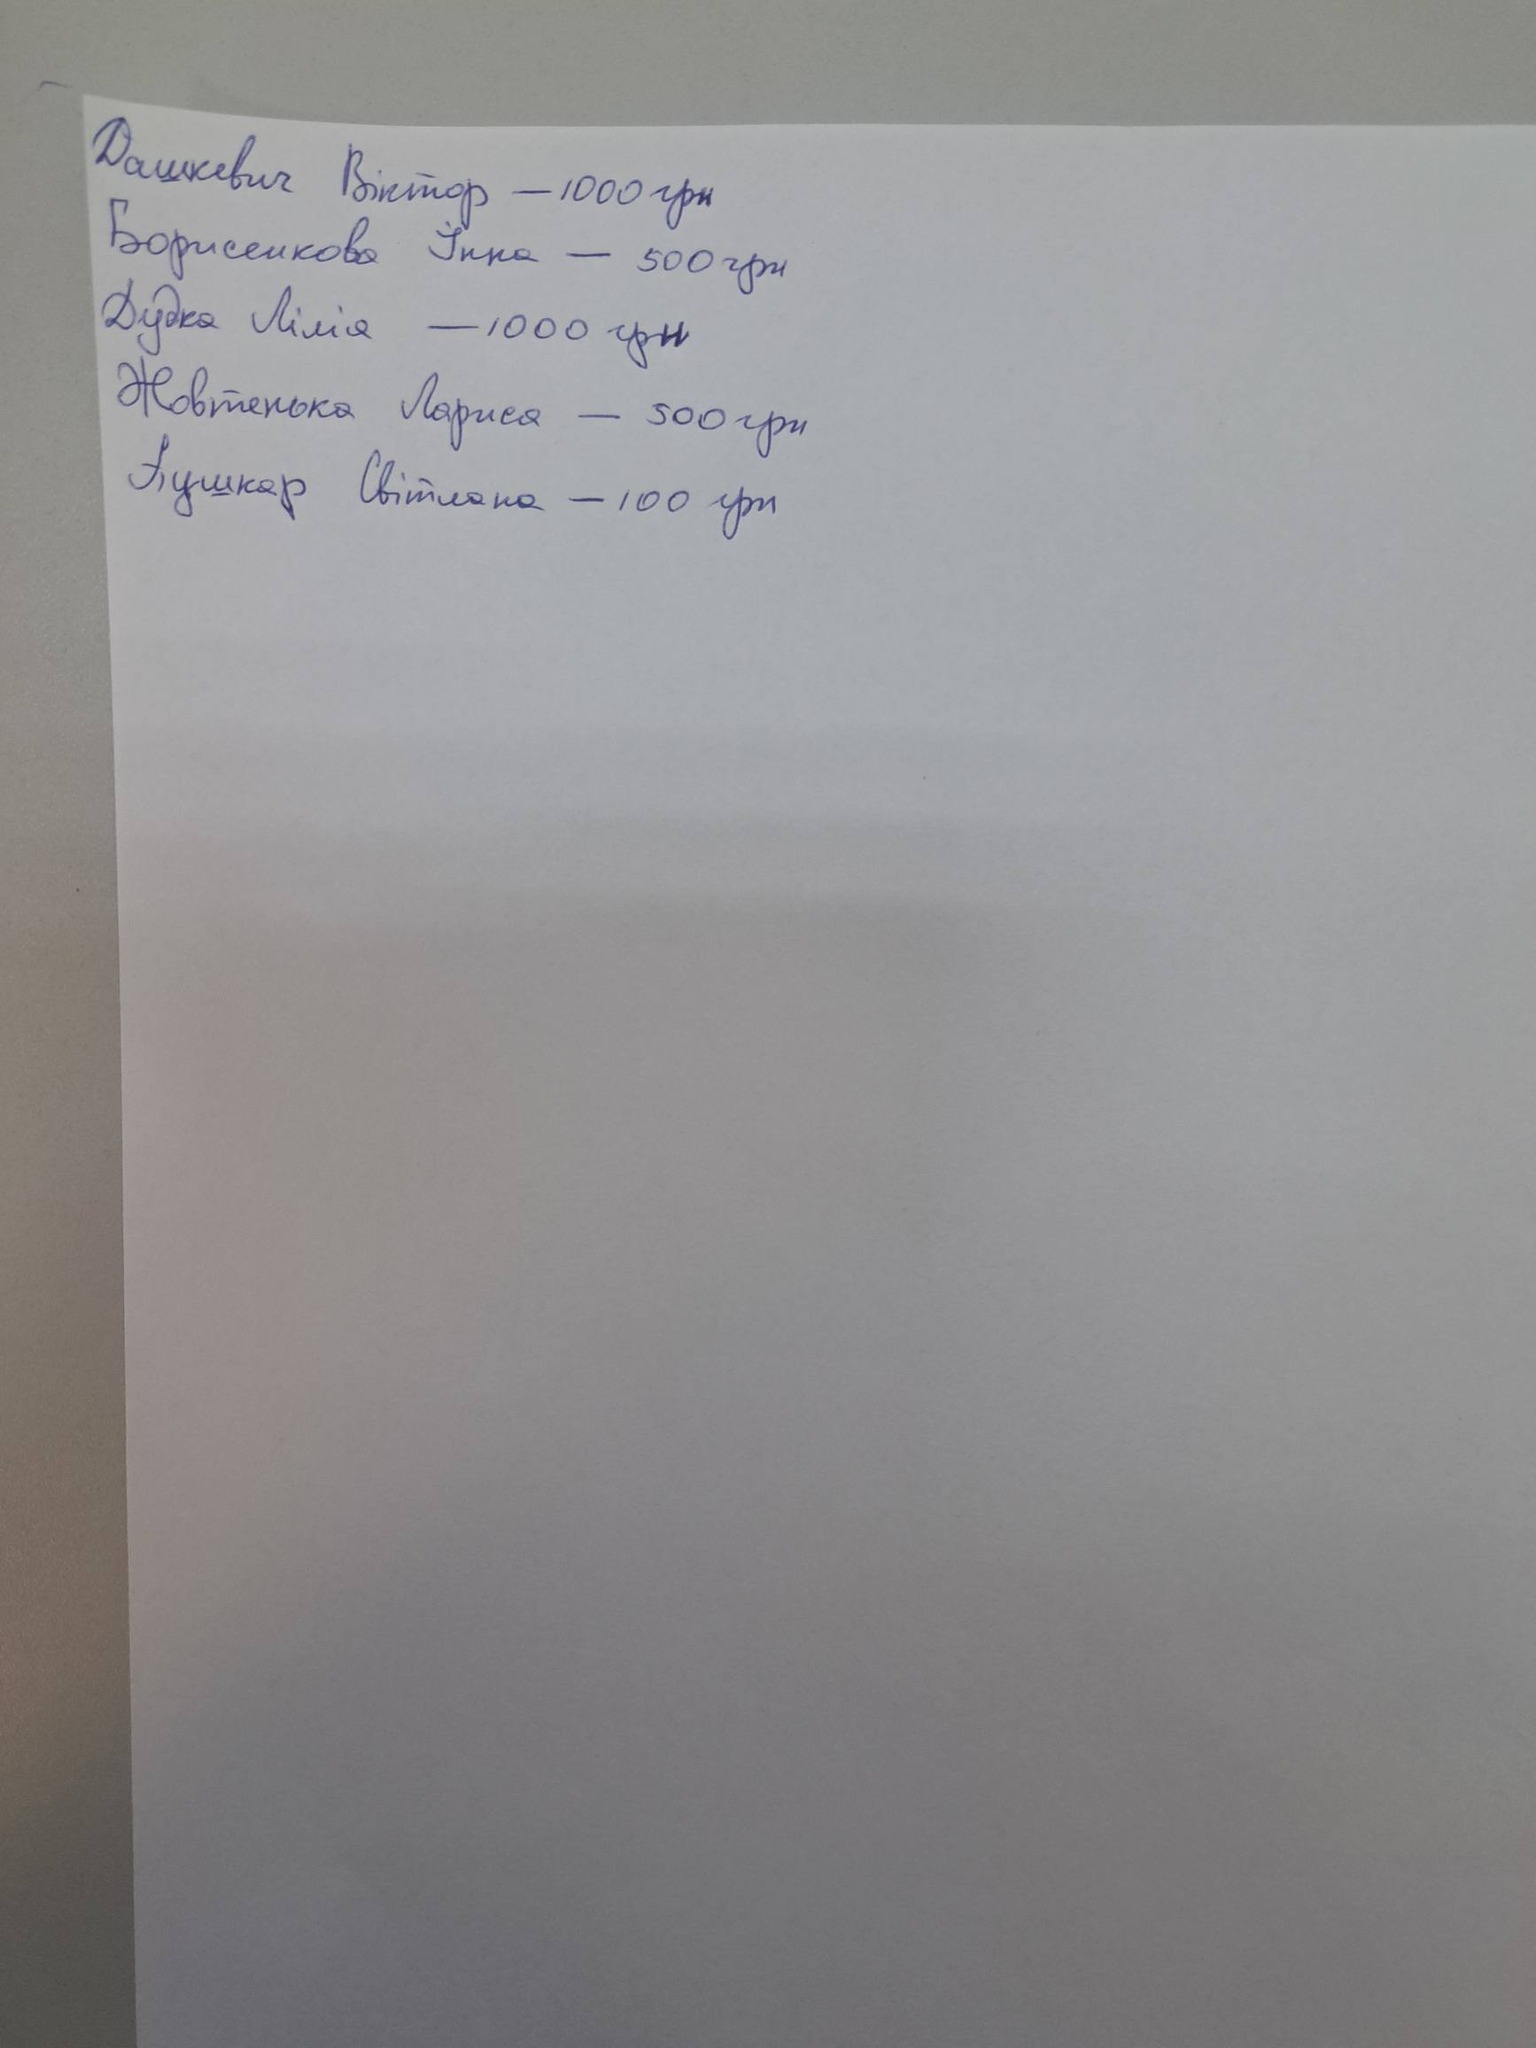 Дашкевич Віктор — 1000 грн
Борисенкова Інна — 500 грн
Дудка Лілія — 1000 грн
Жовтенька Лариса — 500 грн
Пушкар Світлана — 100 грн